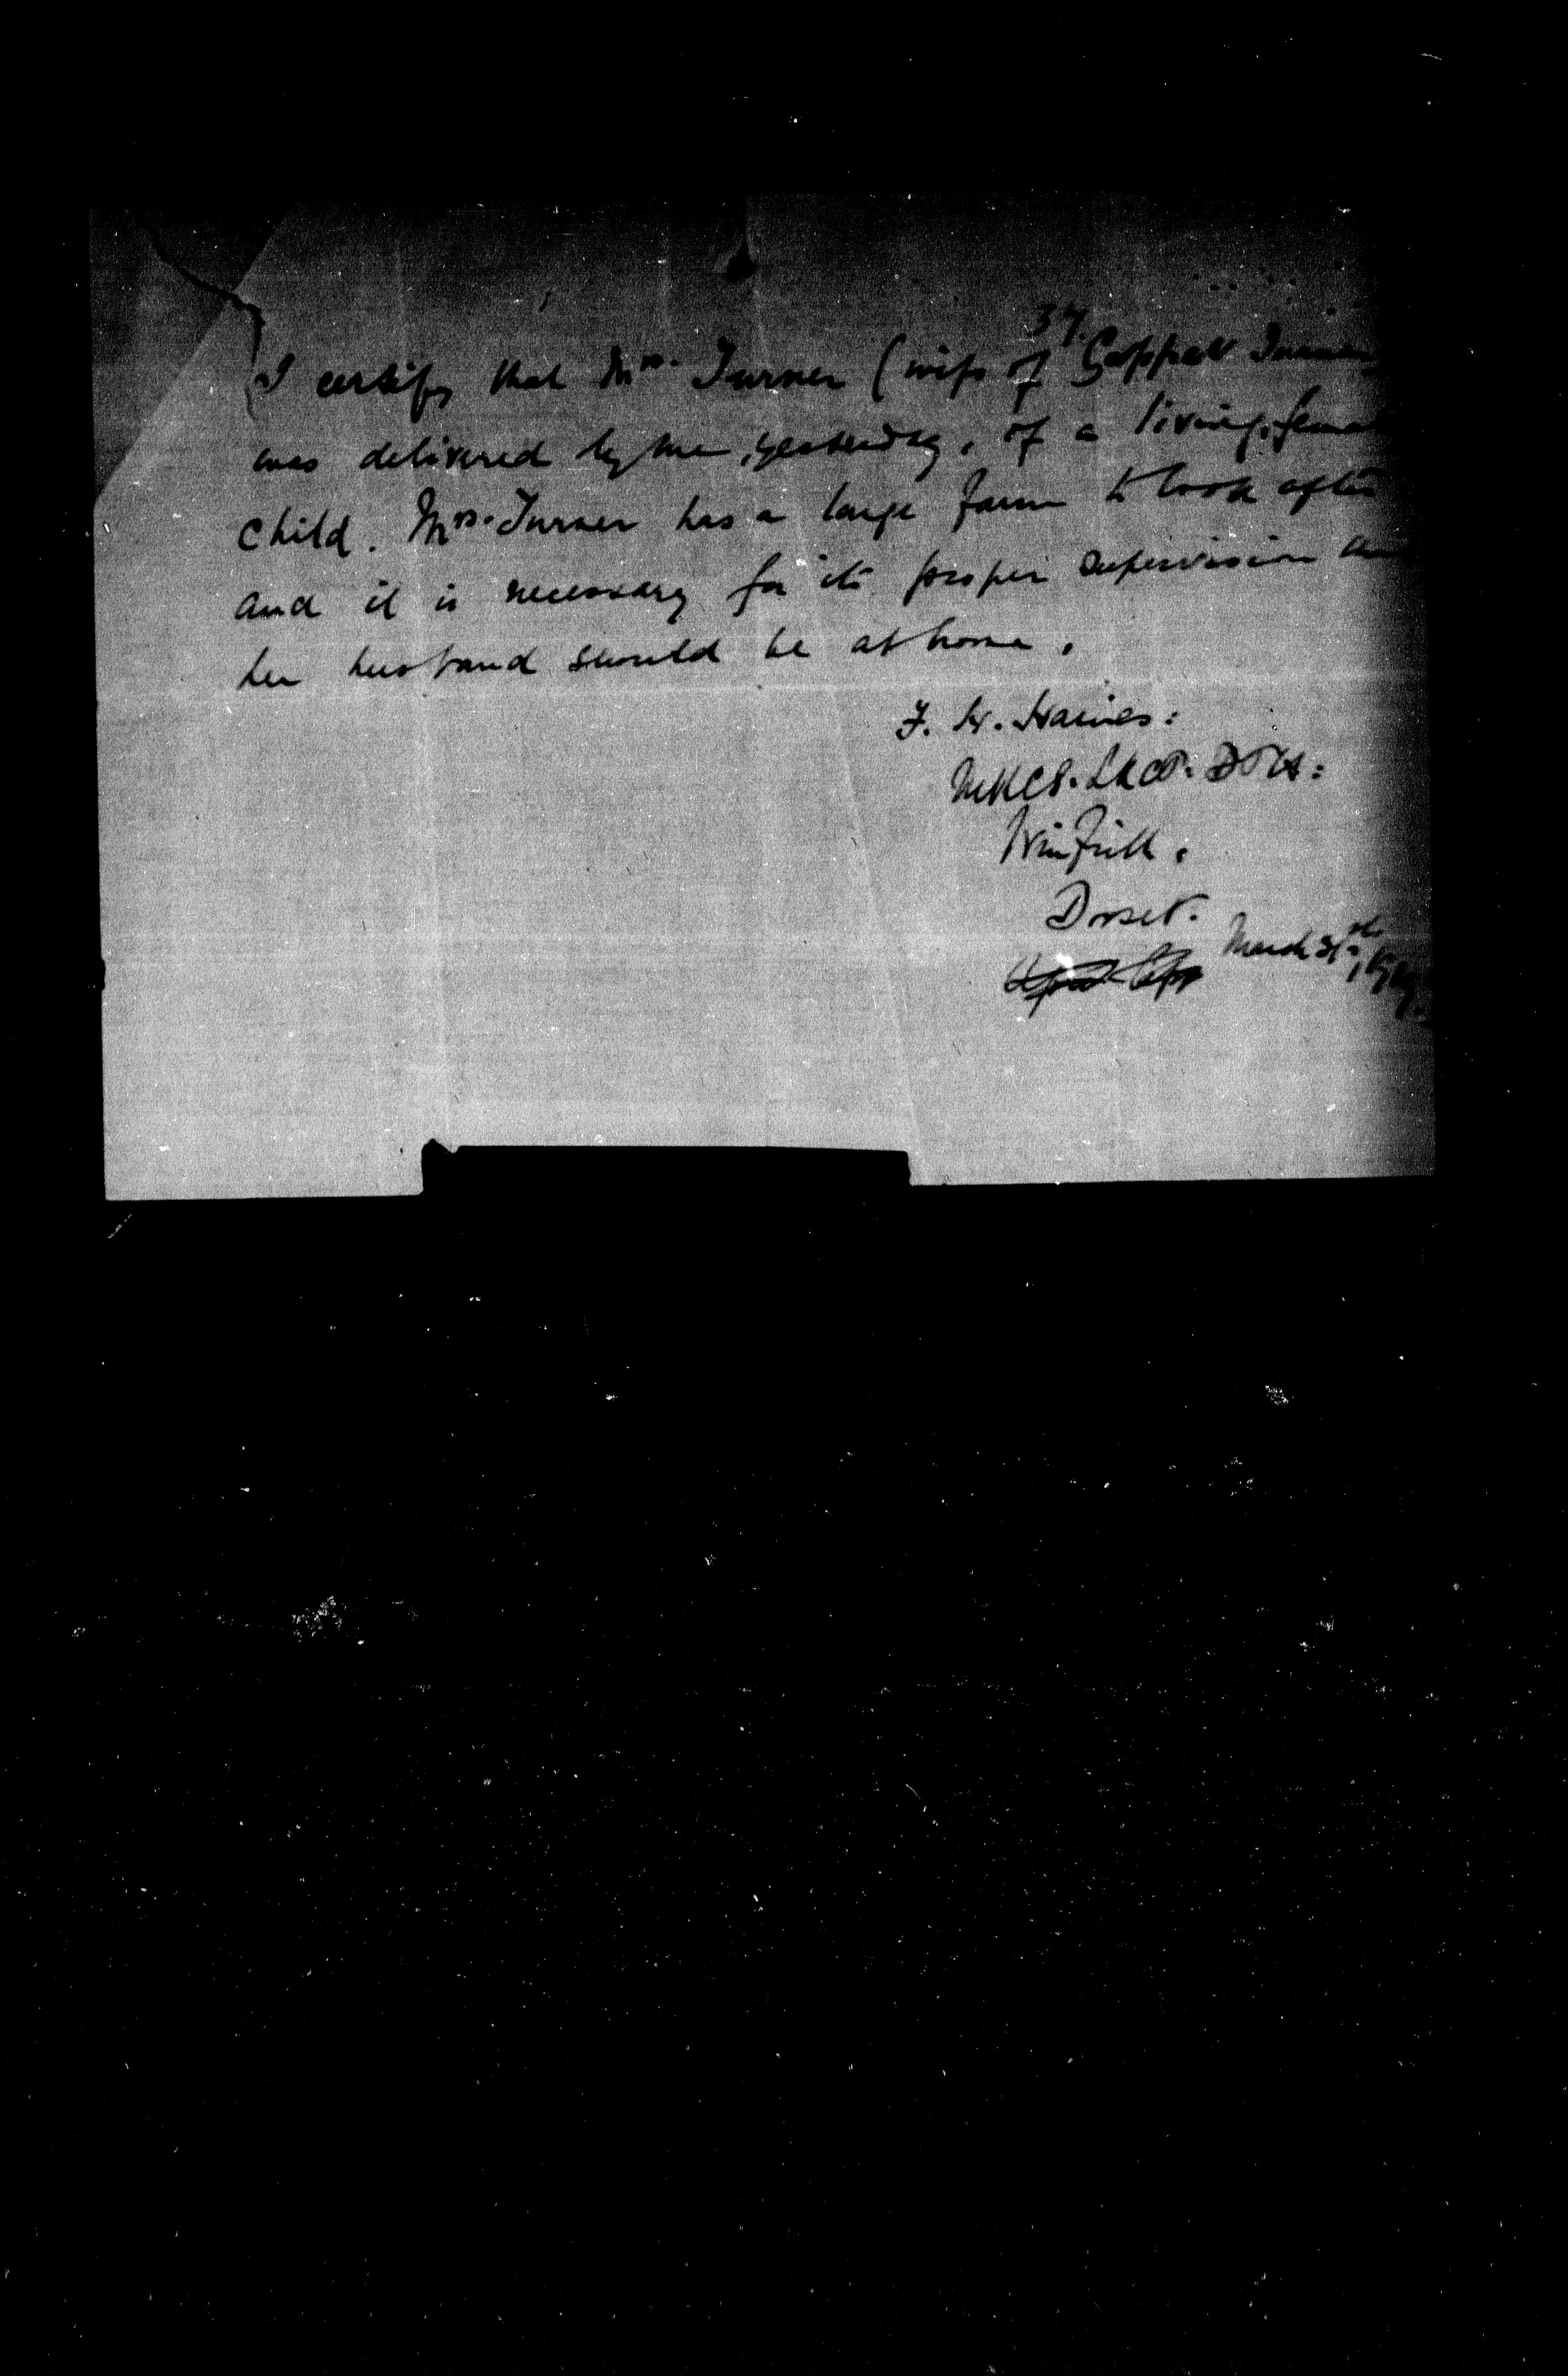 37.
I certify that Mrs. Turner (wife of Sapper Turner
was delivered by me, yesterday, of a living, female
child. Mrs. Turner has a large farm to look after
and it is necessary for its proper supervision
her husband should be at home.
F. W. Haines:
MRCS. LRCP. DPH:
Winfrith.
Dorset.
March 31st